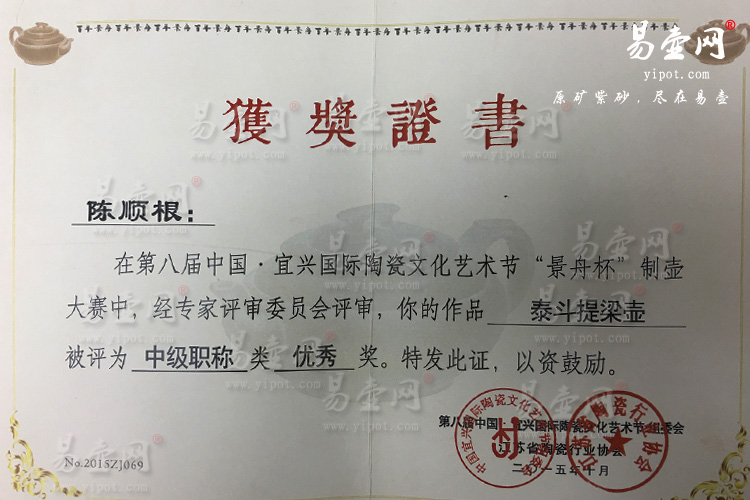 易壶网®
yipot.com
原矿紫砂，尽在易壶
獲獎證書
陈顺根：
在第八届中国·宜兴国际陶瓷文化艺术节“景舟杯”制壶
大赛中，经专家评审委员会评审，你的作品 泰斗提梁壶
被评为 中级职称 类 优秀 奖。特发此证，以资鼓励。
第八届中国·宜兴国际陶瓷文化艺术节组委会
江苏省陶瓷行业协会
二〇一五年十月
No.2015ZJ069